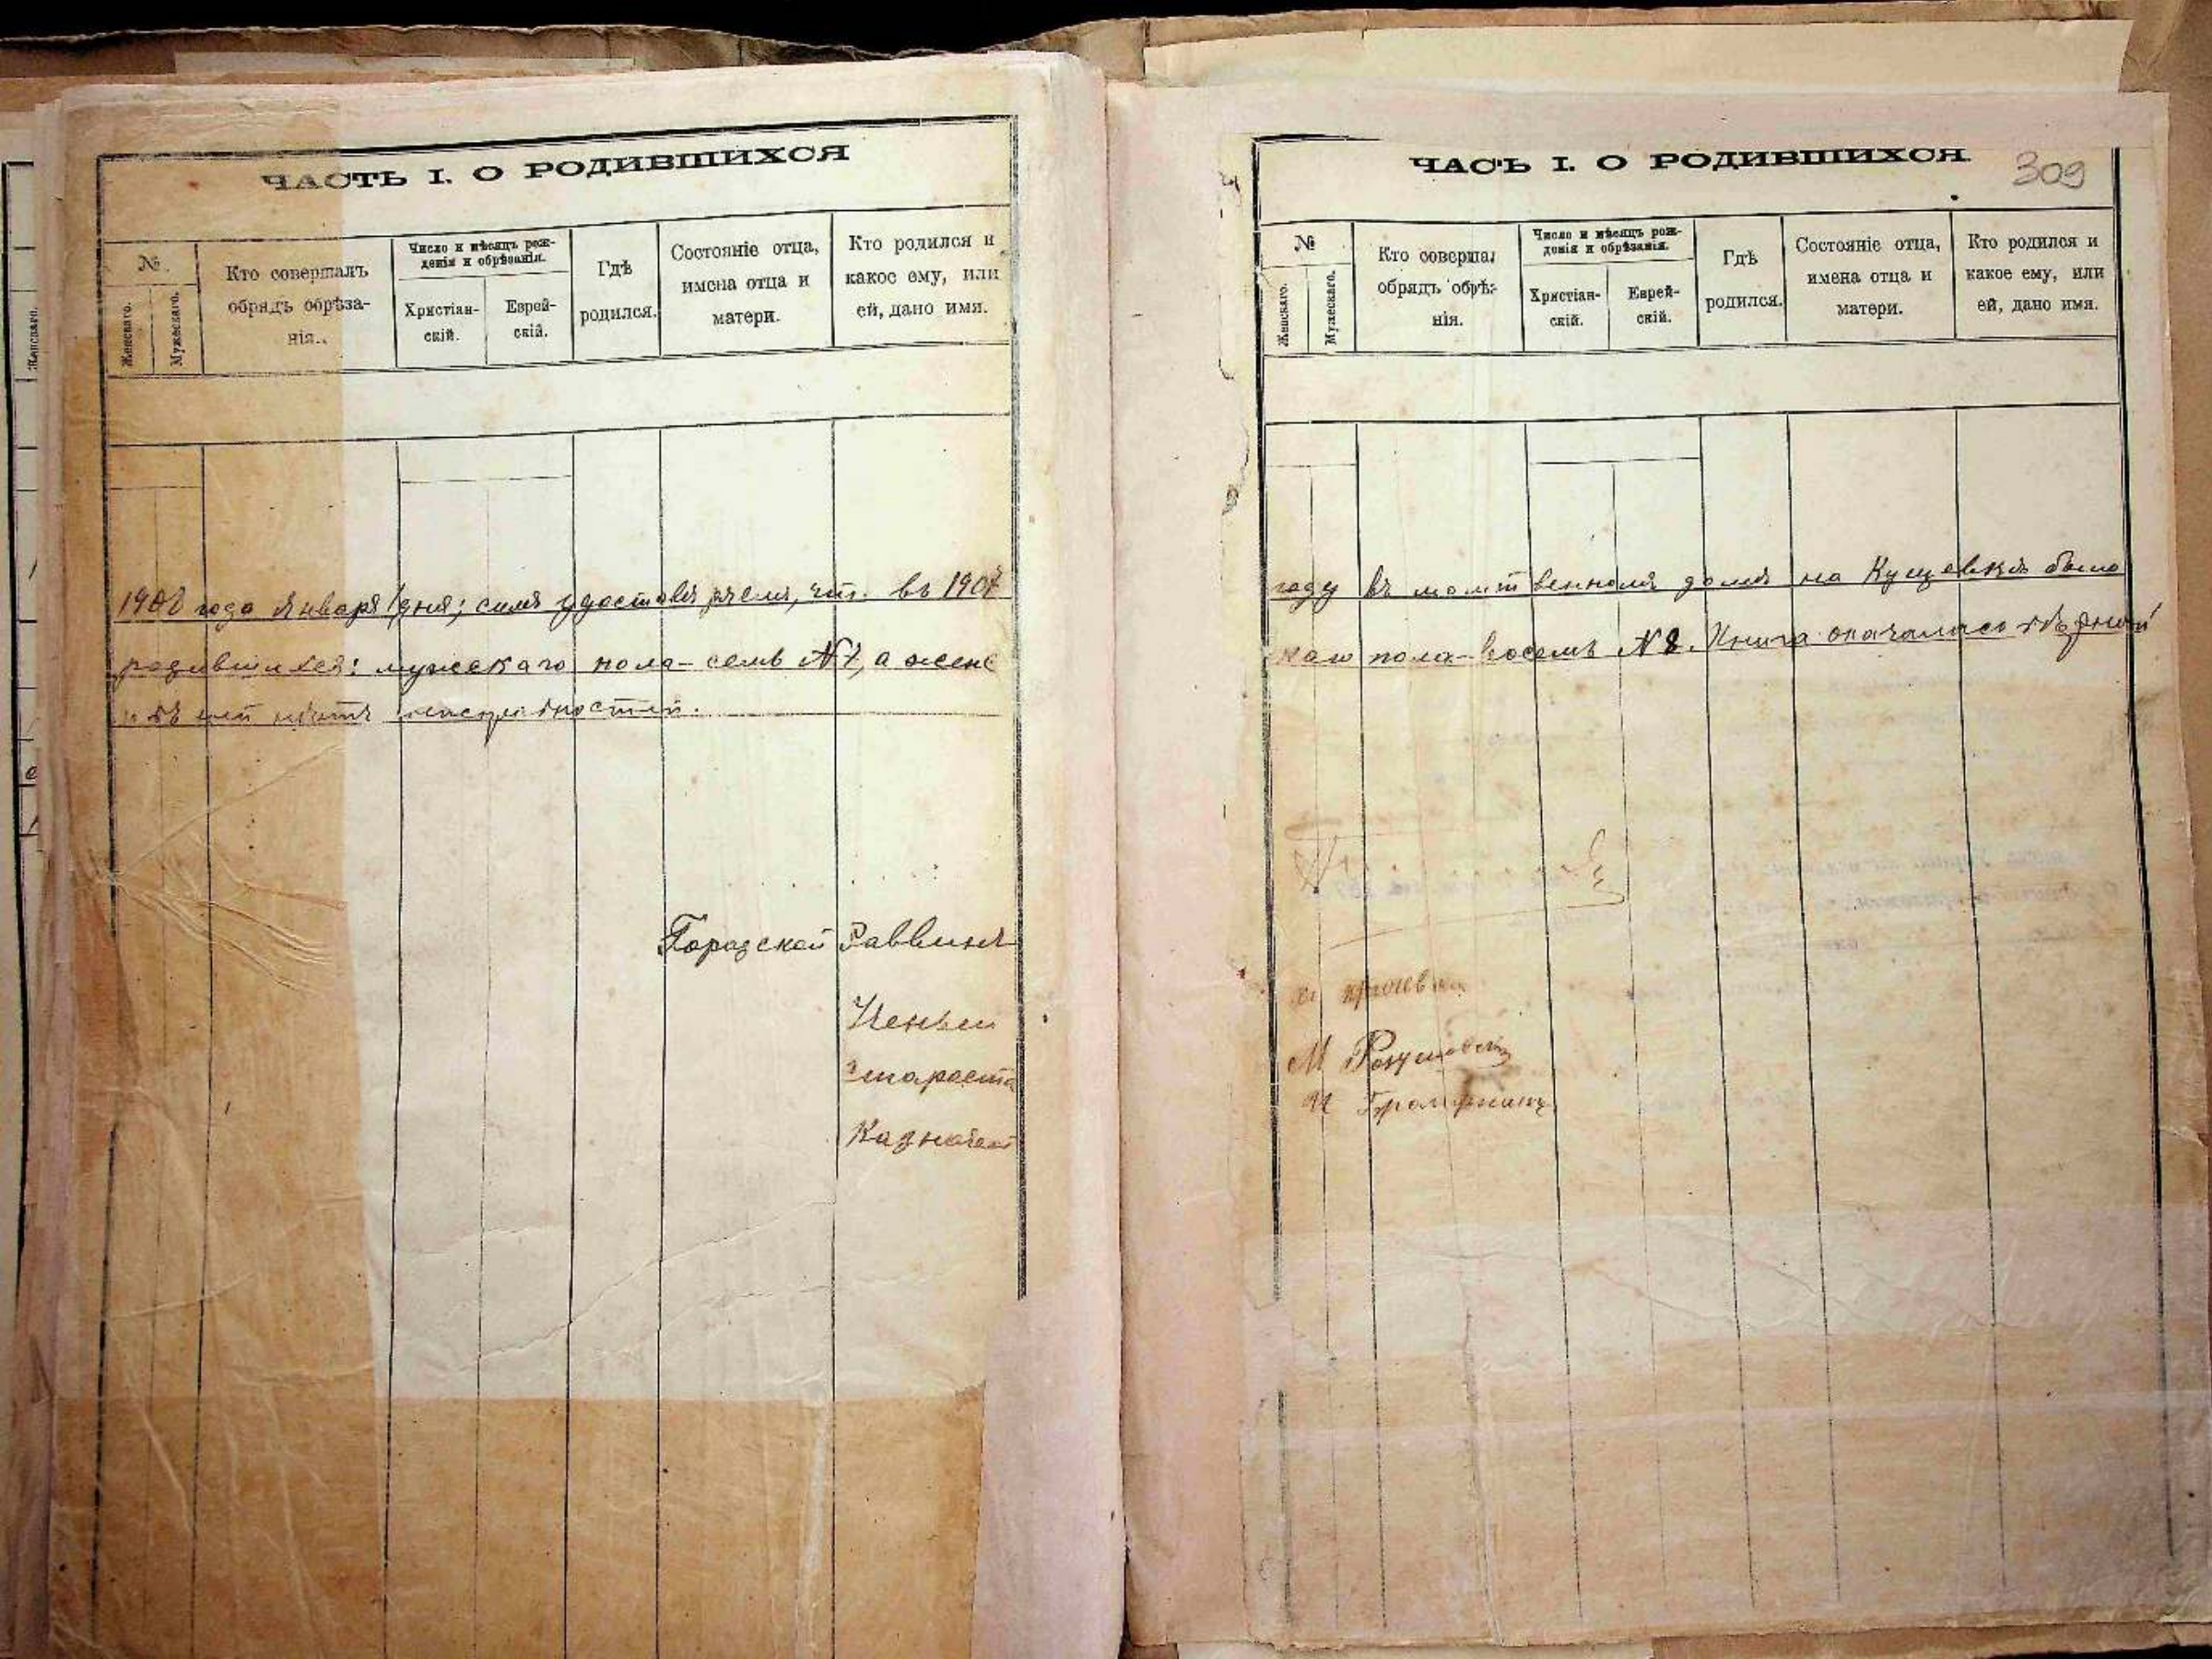 ЧАСТЬ I. О РОДИВШИХСЯ
№.
Женскаго.
Мужескаго.
Кто совершалъ
обрядъ обрѣза-
нія.
Число и мѣсяцъ рож-
денія и обрѣзанія.
Христіан-
скій.
Еврей-
скій.
Гдѣ
родился.
Состояніе отца,
имена отца и
матери.
Кто родился и
какое ему, или
ей, дано имя.
1908 года Января 1 дня; симъ удостовѣряемъ, что въ 1907
родившихся: мужскаго пола - семь № 7, а женс
и въ ней нѣтъ неисправностей.
Городской Раввинъ
Ученый
Староста
Казначей
ЧАСЬ I. О РОДИВШИХСЯ
309
№
Женскаго.
Мужескаго.
Кто соверша
обрядъ обрѣ
нія.
Число и мѣсяцъ рож-
денія и обрѣзанія.
Христіан-
скій.
Еврей-
скій.
Гдѣ
родился.
Состояніе отца,
имена отца и
матери.
Кто родился и
какое ему, или
ей, дано имя.
году въ молитвенномъ домѣ на Кущевкѣ было
каго пола - восемь № 8. Книга оказалась вѣрной
М